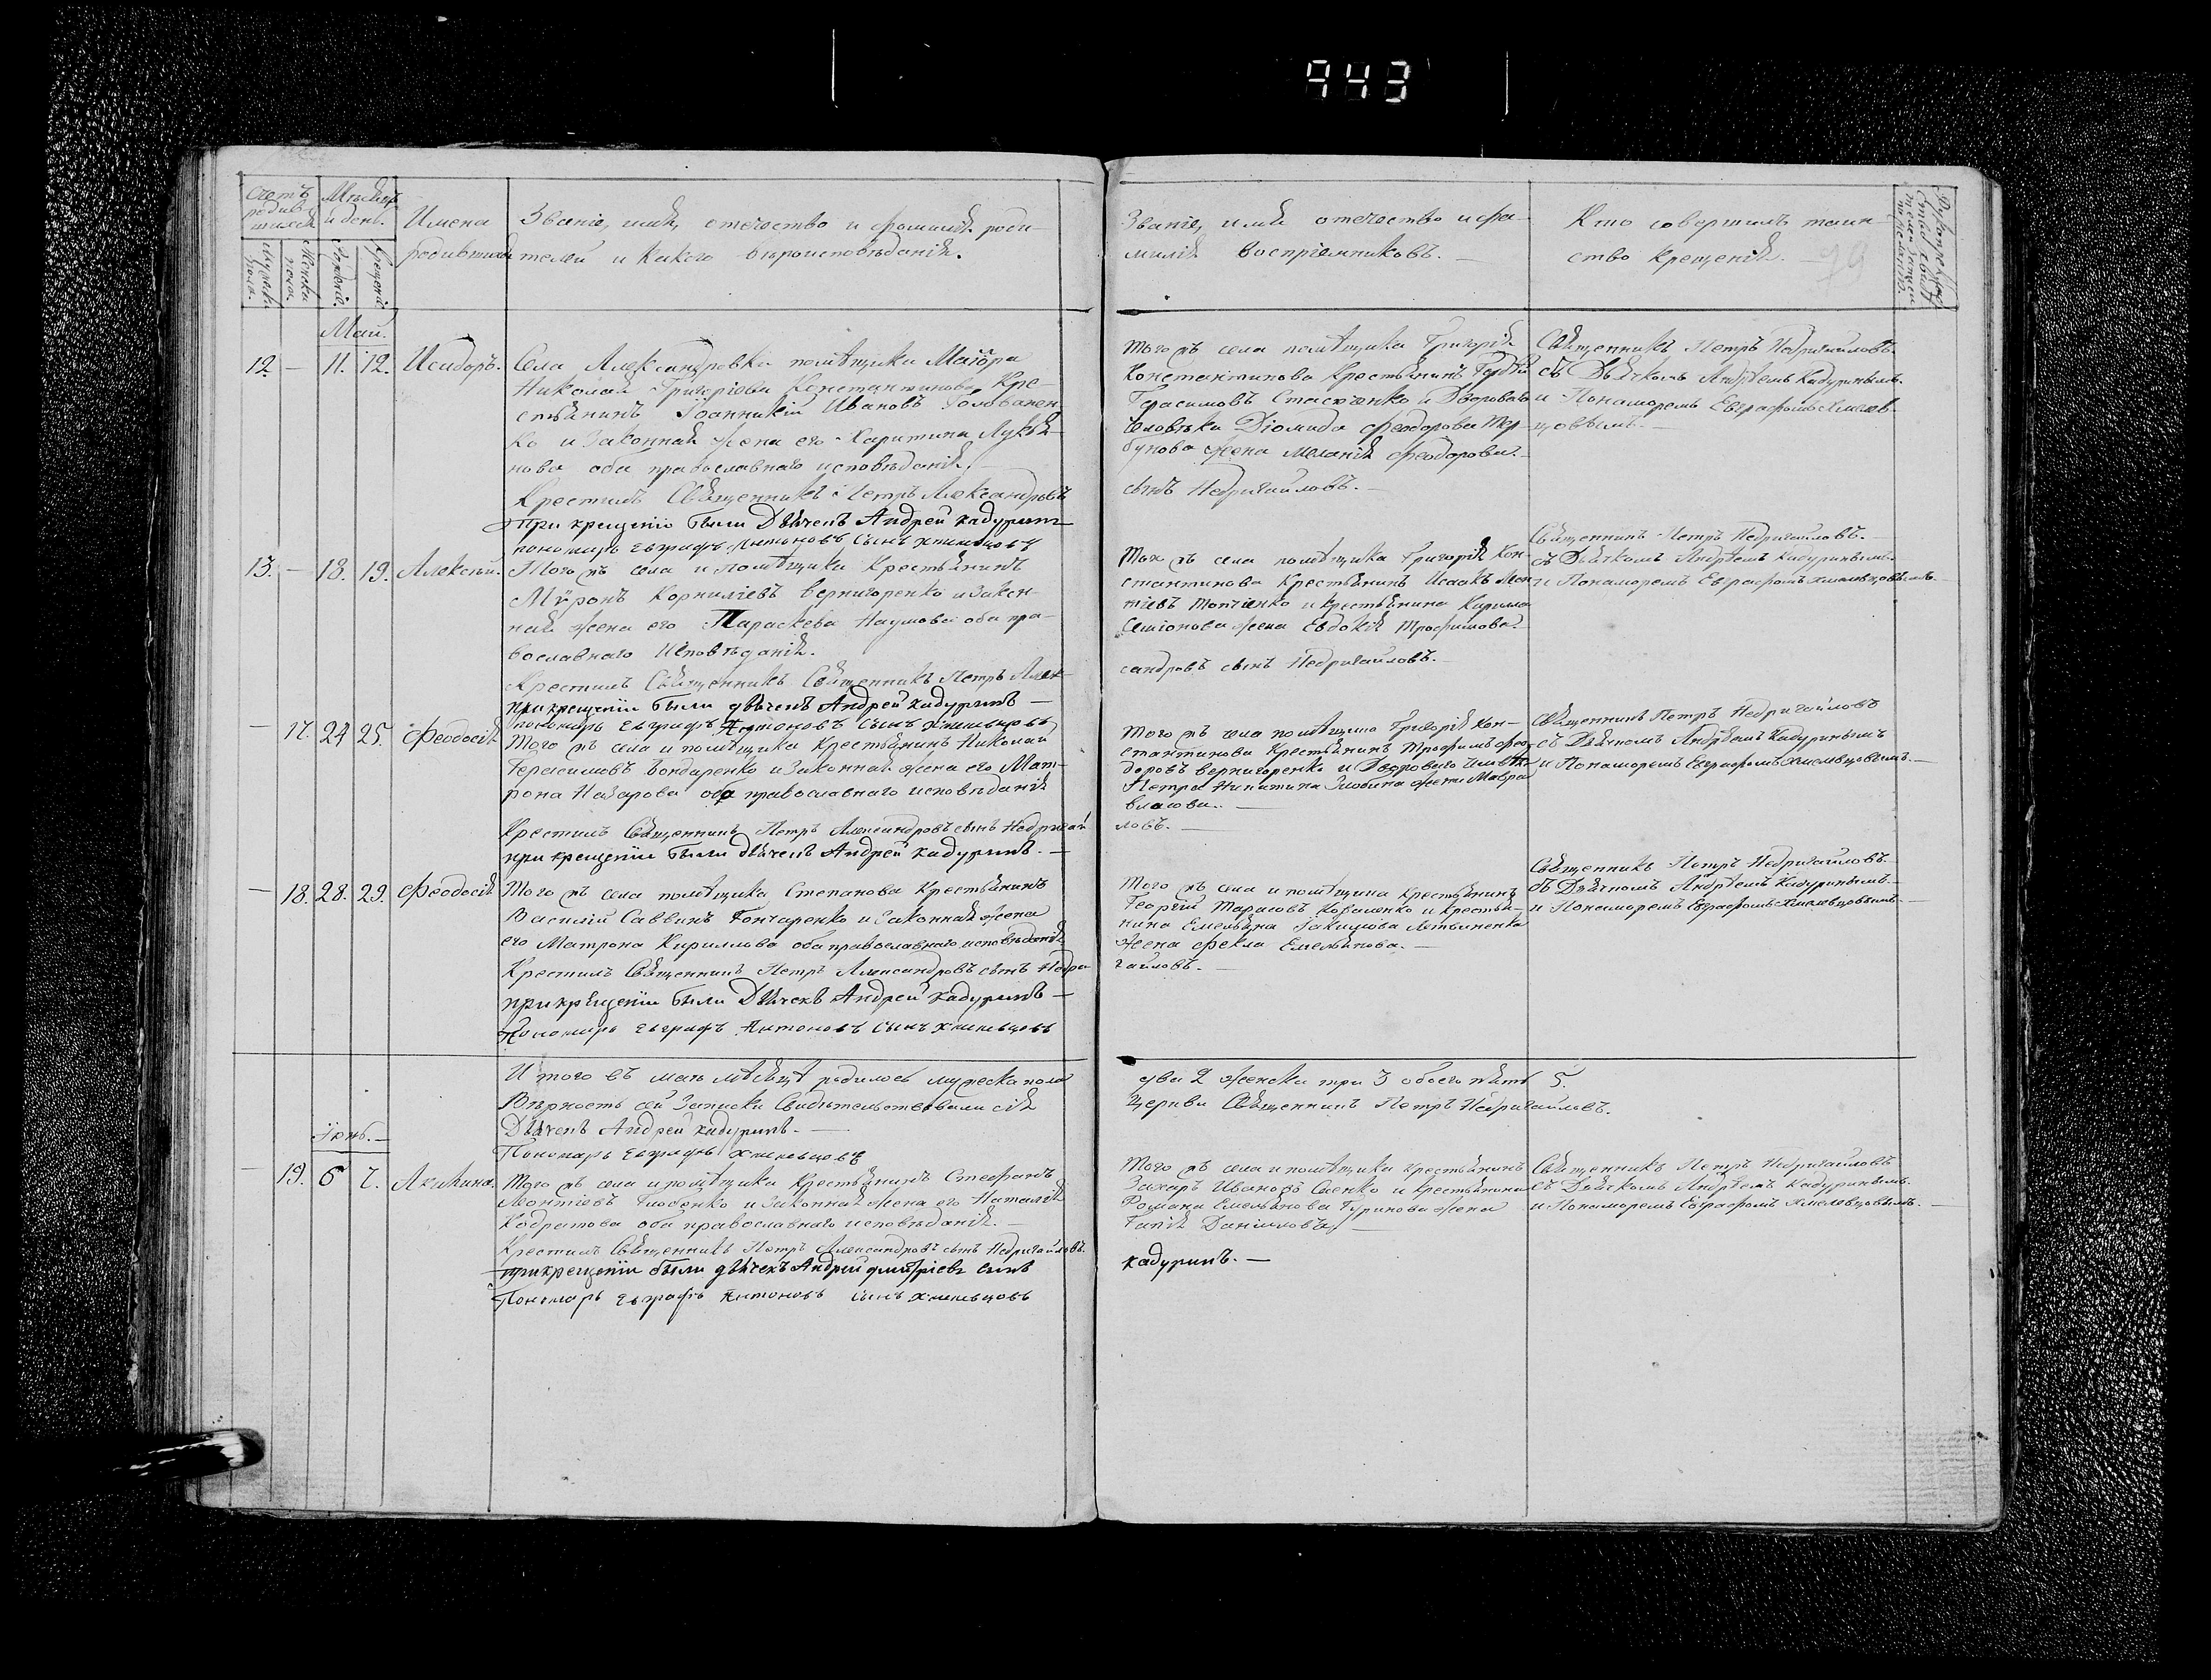 943
Счетъ родившихся
Мѣсяцъ и день.
мужеска пола.
женска пола.
рожденія.
крещенія.
Имена
родившихся
Званіе, имя, отечество и фамилія роди-
телей и какого вѣроисповѣданія.
Званіе, имя отечество и фа-
милія воспріемниковъ.
Кто совершилъ таин
ство крещенія.
79
Май.
12. — 11. 12. Исидоръ.
Села Александровки помѣщика Маіора
Николая Григоріева Константинова Кре-
стьянинъ Іоанникій Ивановъ Голованен
ко и законная жена его Харитина Лукья-
нова оба православнаго исповѣданія,
Крестилъ Священникъ Петръ Александровъ
При крещеніи были Дьячекъ Андрей кадуринъ
пономарь евграфъ Антоновъ сынъ хмелевцовъ
Того жъ села помѣщика Григорія
Константинова Крестьянинъ
Герасимовъ и Двороваго
человѣка Діомида Феодорова
жена Меланія Феодорова.
сынъ Недригайловъ.
Священникъ Петръ Недригайловъ.
съ Дьячкомъ Андреемъ Кадуринымъ.
и Пономоремъ Евграфомъ Хмелев-
цовымъ.
13. — 18. 19. Алексѣй.
Того жъ села и помѣщика Крестьянинъ
Мѵронъ Корниліевъ Вернигоренко и закон-
ная жена его Параскева Наумова оба пра-
вославнаго Исповѣданія.
Крестилъ Священникъ Священникъ Петръ Алек-
при крещеніи были дьячекъ Андрей кадуринъ —
пономарь евграфъ Антоновъ сынъ хмелевцовъ
Того жъ села помѣщика Григорія Кон-
стантинова Крестьянинъ Исаакъ
и крестьянина Кирилла
Симіонова жена Евдокія Трофимова.
сандровъ сынъ Недригайловъ.
Священникъ Петръ Недригайловъ.
съ Дьячкомъ Андреемъ Кадуринымъ.
и Пономоремъ Евграфомъ Хмелевцовымъ.
— 17. 24 25. Феодосія
Того жъ села и помѣщика Крестьянинъ Николай
Герасимовъ Бондаренко и законная жена его Мат-
рона Назарова оба православнаго исповѣданія
Крестилъ Священникъ Петръ Александровъ сынъ Недригай
при крещеніи были дьячекъ Андрей кадуринъ.
Того жъ села помѣщика Григорія Кон-
стантинова Крестьянинъ Трофимъ Фео-
доровъ вернигоренко и Двороваго
Петра Никитина жена Мавра
Власова.
ловъ.
Священникъ Петръ Недригайловъ
съ Дьячкомъ Андреемъ Кадуринымъ
и Пономоремъ Евграфомъ Хмелевцовымъ.
— 18. 28. 29. Феодосія
Того жъ села помѣщика Степанова Крестьянинъ
Василій Саввинъ Гончаренко и законная жена
его Матрона Кириллова оба православнаго исповѣданія
Крестилъ Священникъ Петръ Александровъ сынъ Недри
при крещеніи были Дьячекъ Андрей кадуринъ —
Пономарь евграфъ Антоновъ сынъ хмелевцовъ
Того жъ села и помѣщика крестьянинъ
Георгій Тарасовъ Коваленко и крестья-
нина Емельяна Іакимова Литвиненка
жена Фекла Емельянова.
гайловъ.
Священникъ Петръ Недригайловъ
съ Дьячкомъ Андреемъ Кадуринымъ
и Пономоремъ Евграфомъ Хмелевцовымъ.
Итого въ маѣ мѣсяцѣ родилось мужеска пола
два 2 женска три 3 обоего пять 5.
Вѣрность сей Записки Свидѣтельствовали сія
Церкви Священникъ Петръ Недригайловъ.
Дьячекъ Андрей кадуринъ.
Пономарь евграфъ хмелевцовъ
Іюнь.
— 19. 6 7. Акилина.
Того жъ села и помѣщика крестьянинъ Стефанъ
Леонтіевъ и законная жена его Наталія
Кодратова оба православнаго исповѣданія.
Крестилъ Священникъ Петръ Александровъ сынъ Недригайловъ.
при крещеніи были дьячекъ Андрей дмитріевъ сынъ
кадуринъ.
Пономарь евграфъ Антоновъ сынъ хмелевцовъ
Того жъ села и помѣщика крестьянинъ
Захаръ Ивановъ и крестьянина
Романа Емельянова Гуринова жена
Даніилова,
Священникъ Петръ Недригайловъ
съ Дьячкомъ Андреемъ Кадуринымъ.
и Пономоремъ Евграфомъ Хмелевцовымъ.